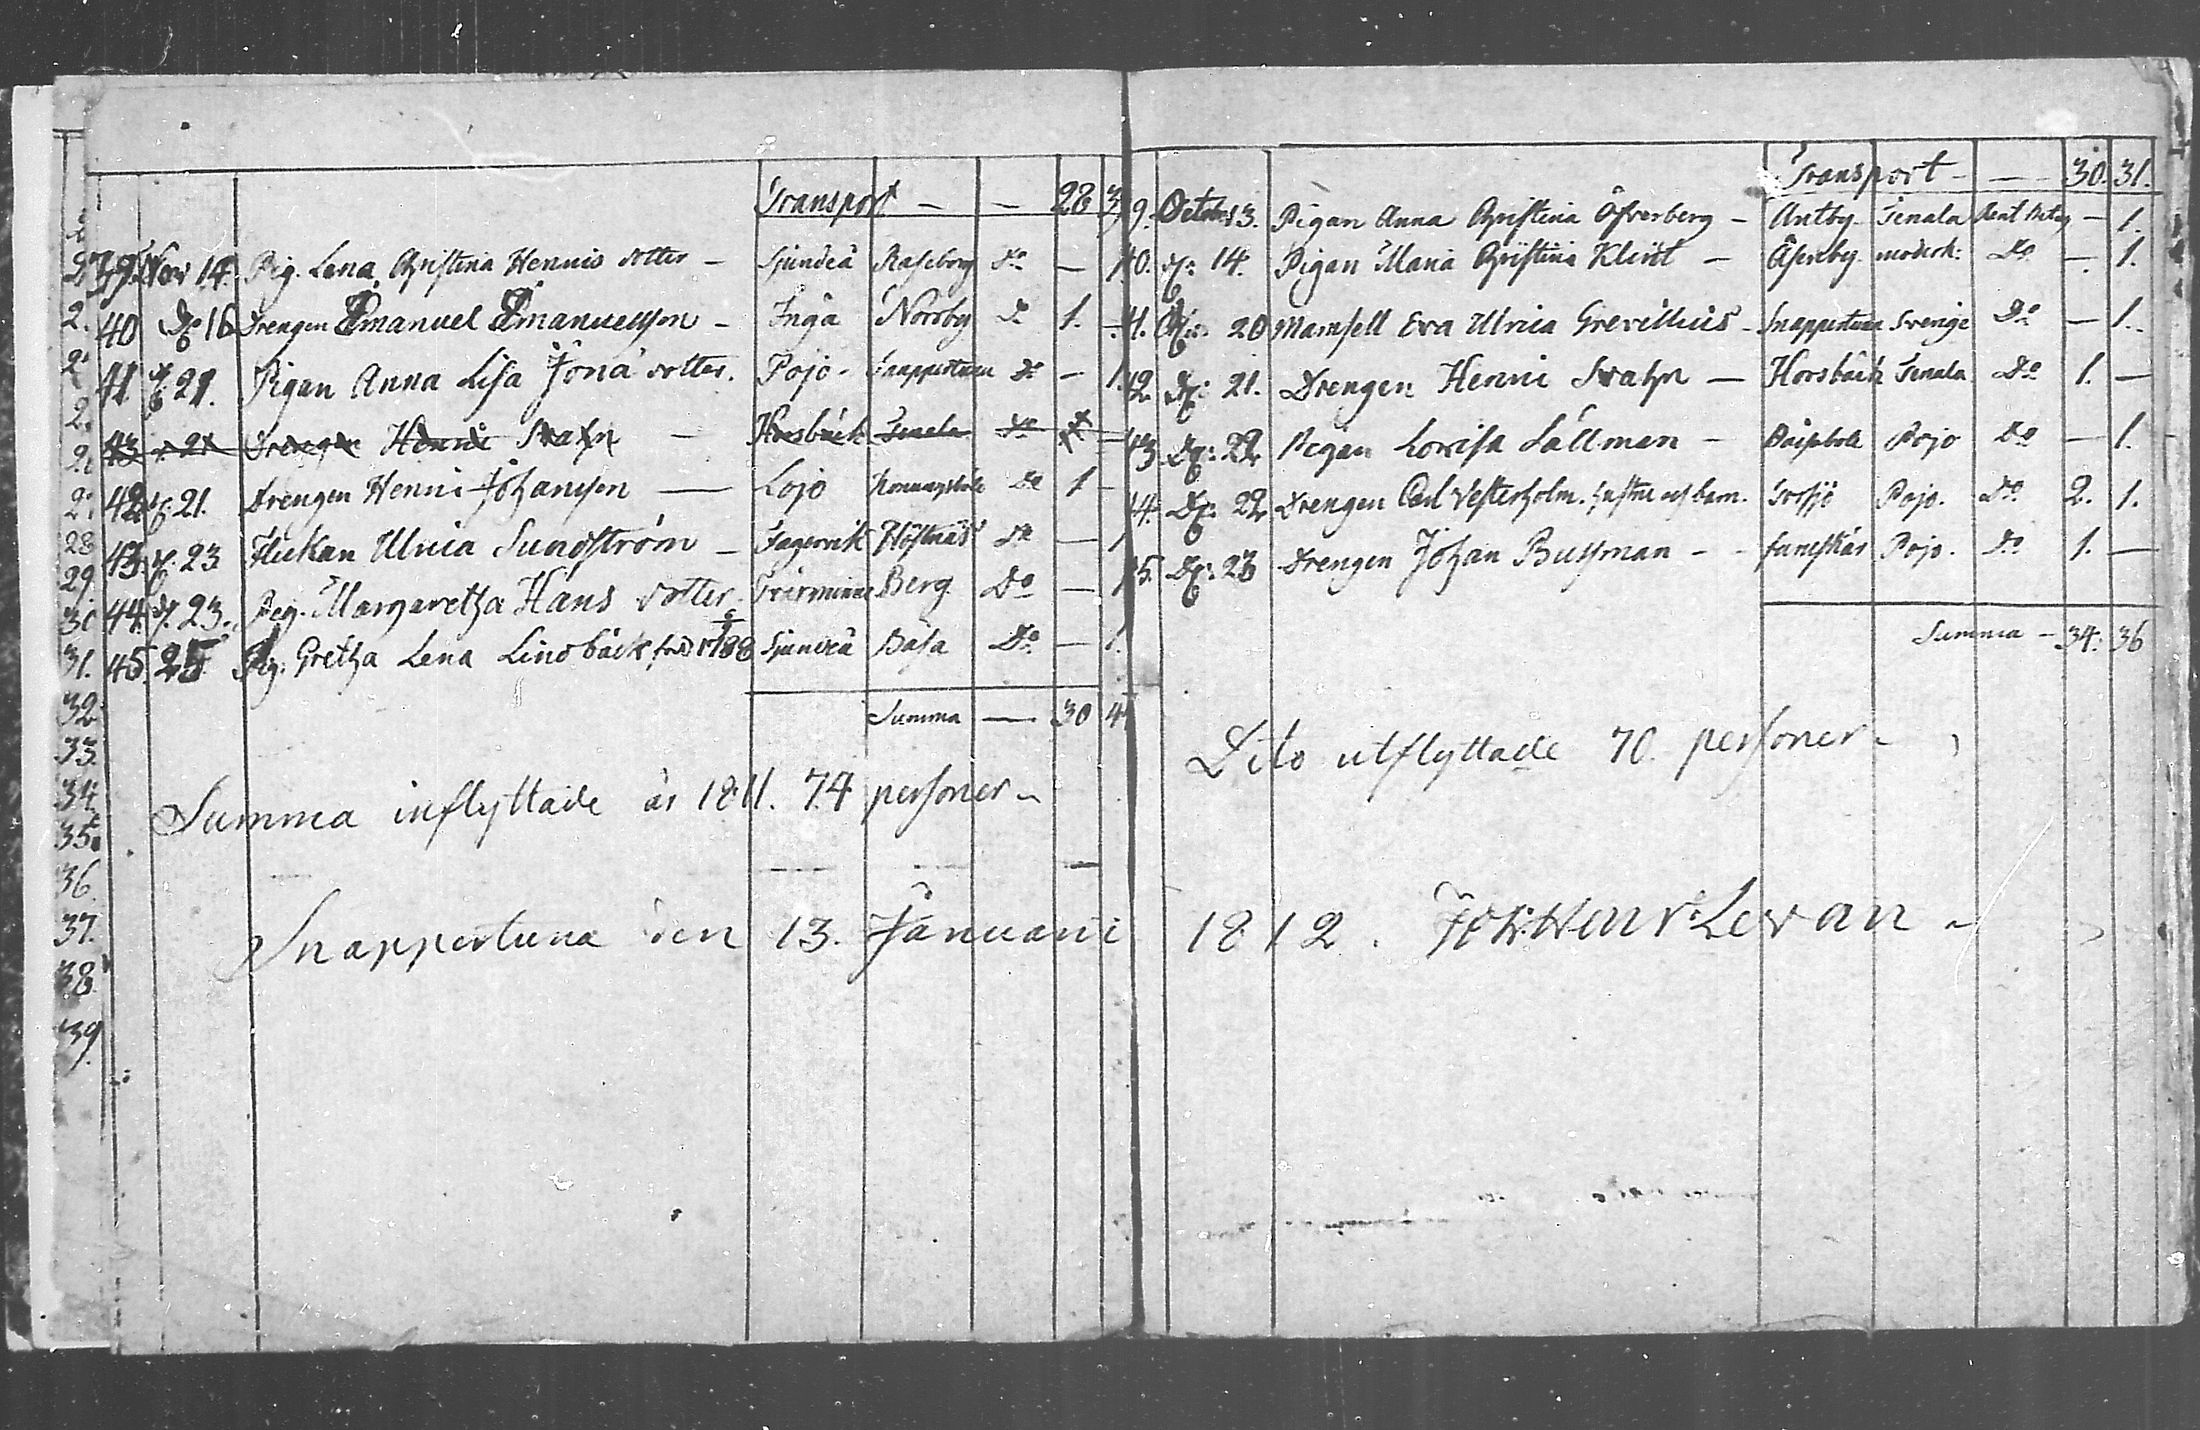 Transport — — 28 3
39. Nov 14. Pig. Lena Christina Henris dotter — Sjundeå Raseborg Do — 1
40 Do 16 Drengen Emanuel Emanuelsson — Ingå Norrby Do 1. —
41 Do 21. Pigan Anna Lisa Jona dotter. Pojo — Snappertuna Do — 1
43 21 Drengen Henric Svahn — Horsbäck Tenala Do
42 Do 21. Drengen Henric Johansson — Lojo Do 1 —
43. Do 23 Flickan Ulrica Sundström — Fagervik Höstnäs Do — 1
44. Do 23. Pig. Margaretha Hans dotter Tvärminne Berg Do — 1
45. 25 Pig. Gretha Lena Lindbäck född 1788 Sjundeå Båsa Do — 1.
Summa — 30 4
Summa inflyttade år 1811. 74 personer —
Snappertuna den 13. Januarii
2.
28
29.
30
31.
32
33.
34.
35.
36
37.
38.
39.
Transport — — 30. 31.
9. Octobr 13. Pigan Anna Christina Öfverberg — Antby Tenala — 1.
40. Do: 14. Pigan Maria Christina Klint — Do — 1.
41. Do: 20 Mamsell Eva Ulrica Grevillius — Snappertuna Sverige Do — 1.
42. Do: 21. Drengen Henric Svahn — Horsbäck Tenala Do 1. —
43 Do: 22 Pigan Lovisa Sällman — Pojo Do — 1.
44. Do: 22 Drengen Carl Vesterholm. hustru och barn. Pojo. Do 2. 1.
45. Do: 23 Drengen Johan Bussman — — Pojo. Do 1. —
Summa — 34. 36
Dito utflyttade 70. personer —
1812. Joh: Henr: Levan